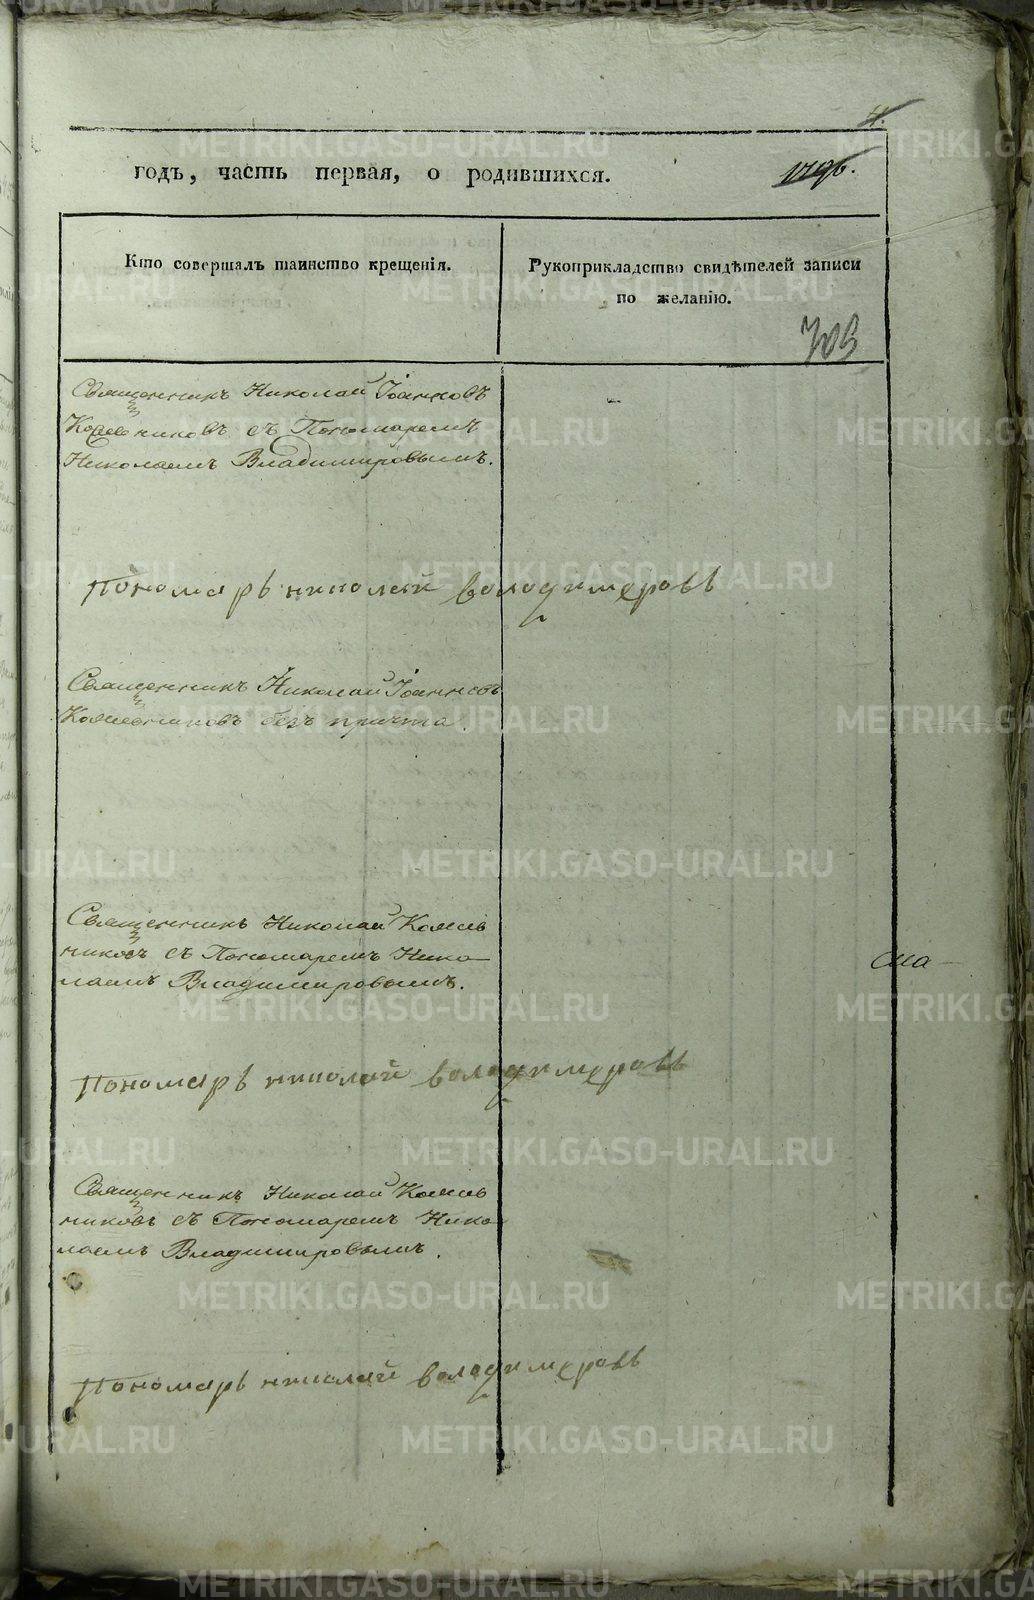 4.
годъ, часть первая, о родившихся.
Кто совершалъ таинство крещенія.
Рукоприкладство свидѣтелей записи
по желанію.
703
Священникъ Николай Іоанновъ
съ Пономаремъ
Николаемъ Владимировымъ.
Пономарь николай володимеровъ
Священникъ Николай Іоанновъ
безъ причта.
Священникъ Николай
никовъ съ Пономаремъ Нико
лаемъ Владимировымъ.
сла-
Пономарь николай володимеровъ
Священникъ Николай
никовъ съ Пономаремъ Нико
лаемъ Владимировымъ.
Пономарь николай володимеровъ
METRIKI.GASO-URAL.RU